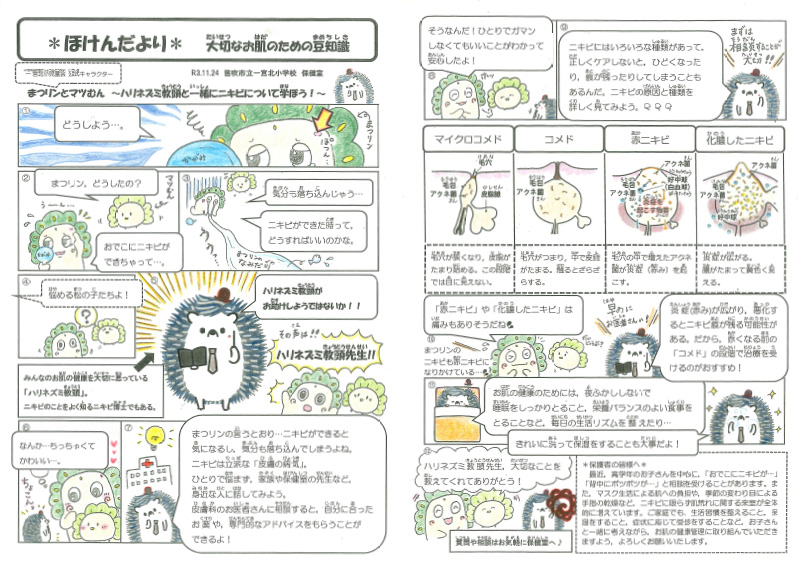 ＊ほけんだより＊
大切なお肌のための豆知識
R3.11.24 笛吹市立一宮北小学校 保健室
まつリンとマツむん ～ハリネズミ教頭と一緒にニキビについて学ぼう！～
①
どうしよう…。
かがみ
ぽつん…
まつリン
②
まつリン、どうしたの？
おでこにニキビが
できちゃって…。
③
気分も落ち込んじゃう…。
ニキビができた時って、
どうすればいいのかな。
④
悩める松の子たちよ！
⑤
ハリネズミ教頭が
お助けしようではないか！！
その声は!!
ハリネズミ教頭先生!!
みんなのお肌の健康を大切に思っている
「ハリネズミ教頭」。
ニキビのことをよく知るニキビ博士でもある。
⑥
なんか…ちっちゃくて
かわいい…。
⑦
まつリンの言うとおり…ニキビができると
気になるし、気分も落ち込んでしまうよね。
ニキビは立派な「皮膚の病気」。
ひとりで悩まず、家族や保健室の先生など、
身近な人に話してみよう。
皮膚科のお医者さんに相談すると、自分に合った
お薬や、専門的なアドバイスをもらうことが
できるよ！
そうなんだ！ひとりでガマン
しなくてもいいことがわかって
安心したよ！
⑧
⑨
ニキビにはいろいろな種類があって、
正しくケアしないと、ひどくなった
り、痕が残ったりしてしまうことも
あるんだ。ニキビの原因と種類を
詳しく見てみよう。
まずは
相談することが
大切!!
マイクロコメド
コメド
赤ニキビ
化膿したニキビ
毛穴
毛包
アクネ菌
皮脂腺
毛包
アクネ菌
アクネ菌
毛包
好中球
(白血球)
炎症を
起こす物質
アクネ菌
毛包
好中球
毛穴が狭くなり、皮脂が
たまり始める。この段階
では目に見えない。
毛穴がつまり、中で皮脂
がたまる。触るとざらざ
らする。
毛穴の中で増えたアクネ
菌が炎症（赤み）を起
こす。
炎症が広がる。
膿がたまって黄色く見
える。
「赤ニキビ」や「化膿したニキビ」は
痛みもありそうだね
⑩
まつリンの
ニキビも赤ニキビに
なりかけている…
早めに
お医者さんへ！
炎症（赤み）が広がり、悪化す
るとニキビ痕が残る可能性が
ある。だから、赤くなる前の
「コメド」の段階で治療を受
けるのがおすすめ！
⑪
お肌の健康のためには、夜ふかししないで
睡眠をしっかりとること、栄養バランスのよい食事を
とることなど、毎日の生活リズムを整えたり…
きれいに洗って保湿をすることも大事だよ！
⑫
ハリネズミ教頭先生、大切なことを
教えてくれてありがとう！
質問や相談はお気軽に保健室へ♪
＊保護者の皆様へ＊
最近、高学年のお子さんを中心に、「おでこにニキビが…」
「背中にポツポツが…」と相談を受けることがあります。ま
た、マスク生活による肌への負担や、季節の変わり目による
手指の乾燥など、ニキビに限らず肌荒れに関する来室が全体
的に増えています。ご家庭でも、生活習慣を整えること、保
湿をすること、症状に応じて受診をすることなど、お子さん
と一緒に考えながら、お肌の健康管理に取り組んでいただき
ますよう、よろしくお願いいたします。